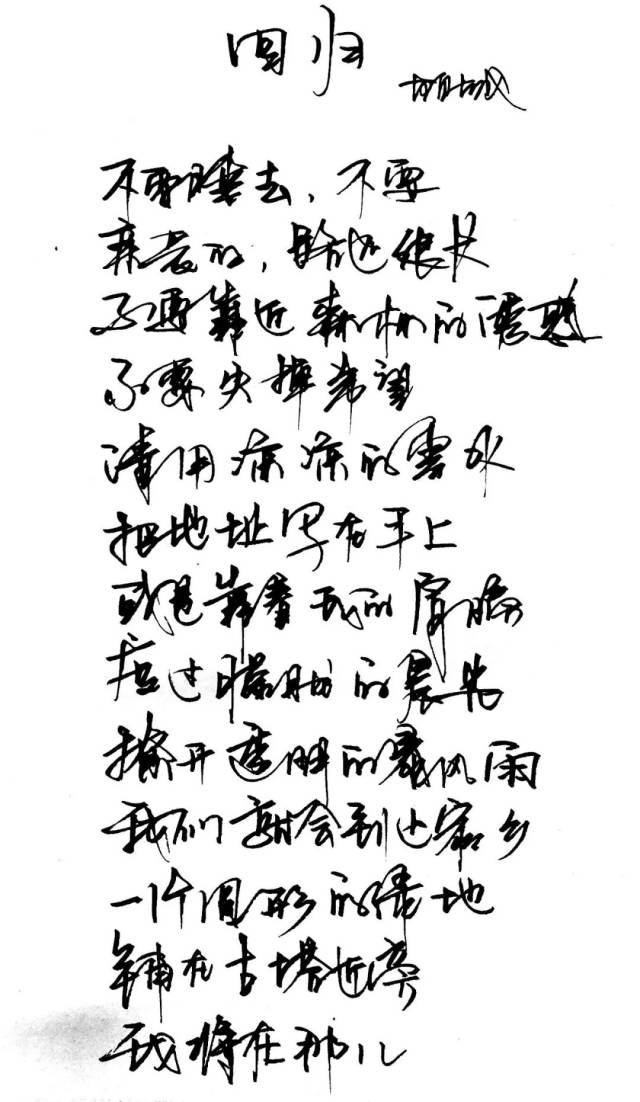 回归
顾城
不要睡去,不要
亲爱的,路还很长
不要靠近森林的诱惑
不要失掉希望
请用凉凉的雪水
把地址写在手上
或是靠着我的肩膀
度过朦胧的晨光
撩开透明的暴风雨
我们就会到达家乡
一个圆形的绿地
铺在古塔近旁
我将在那儿